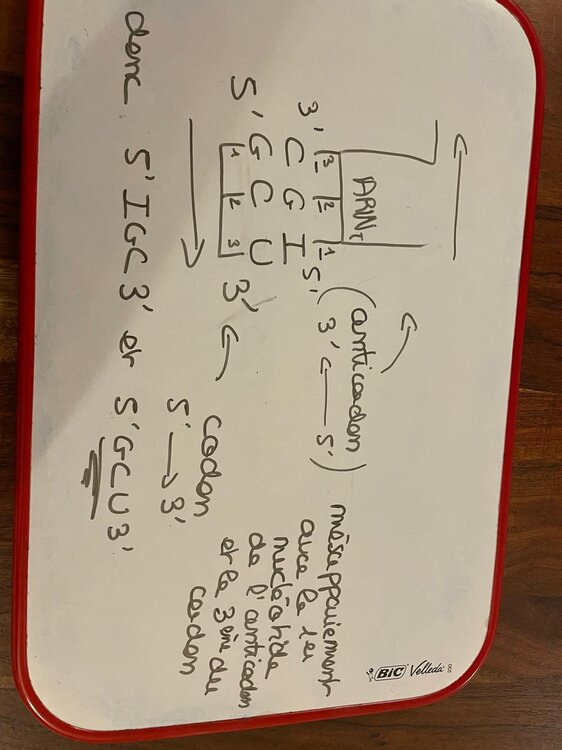 ARNt
3 2 1
3' C G I 5'
(anticodon
3' ← 5')
5' G C U 3' ←
1 2 3
codon
5' → 3'
mésappaiement
avec le 1er
nucléotide
de l'anticodon
et le 3ème du
codon
donc 5' IGC 3' et 5' GCU 3'
BIC Velleda